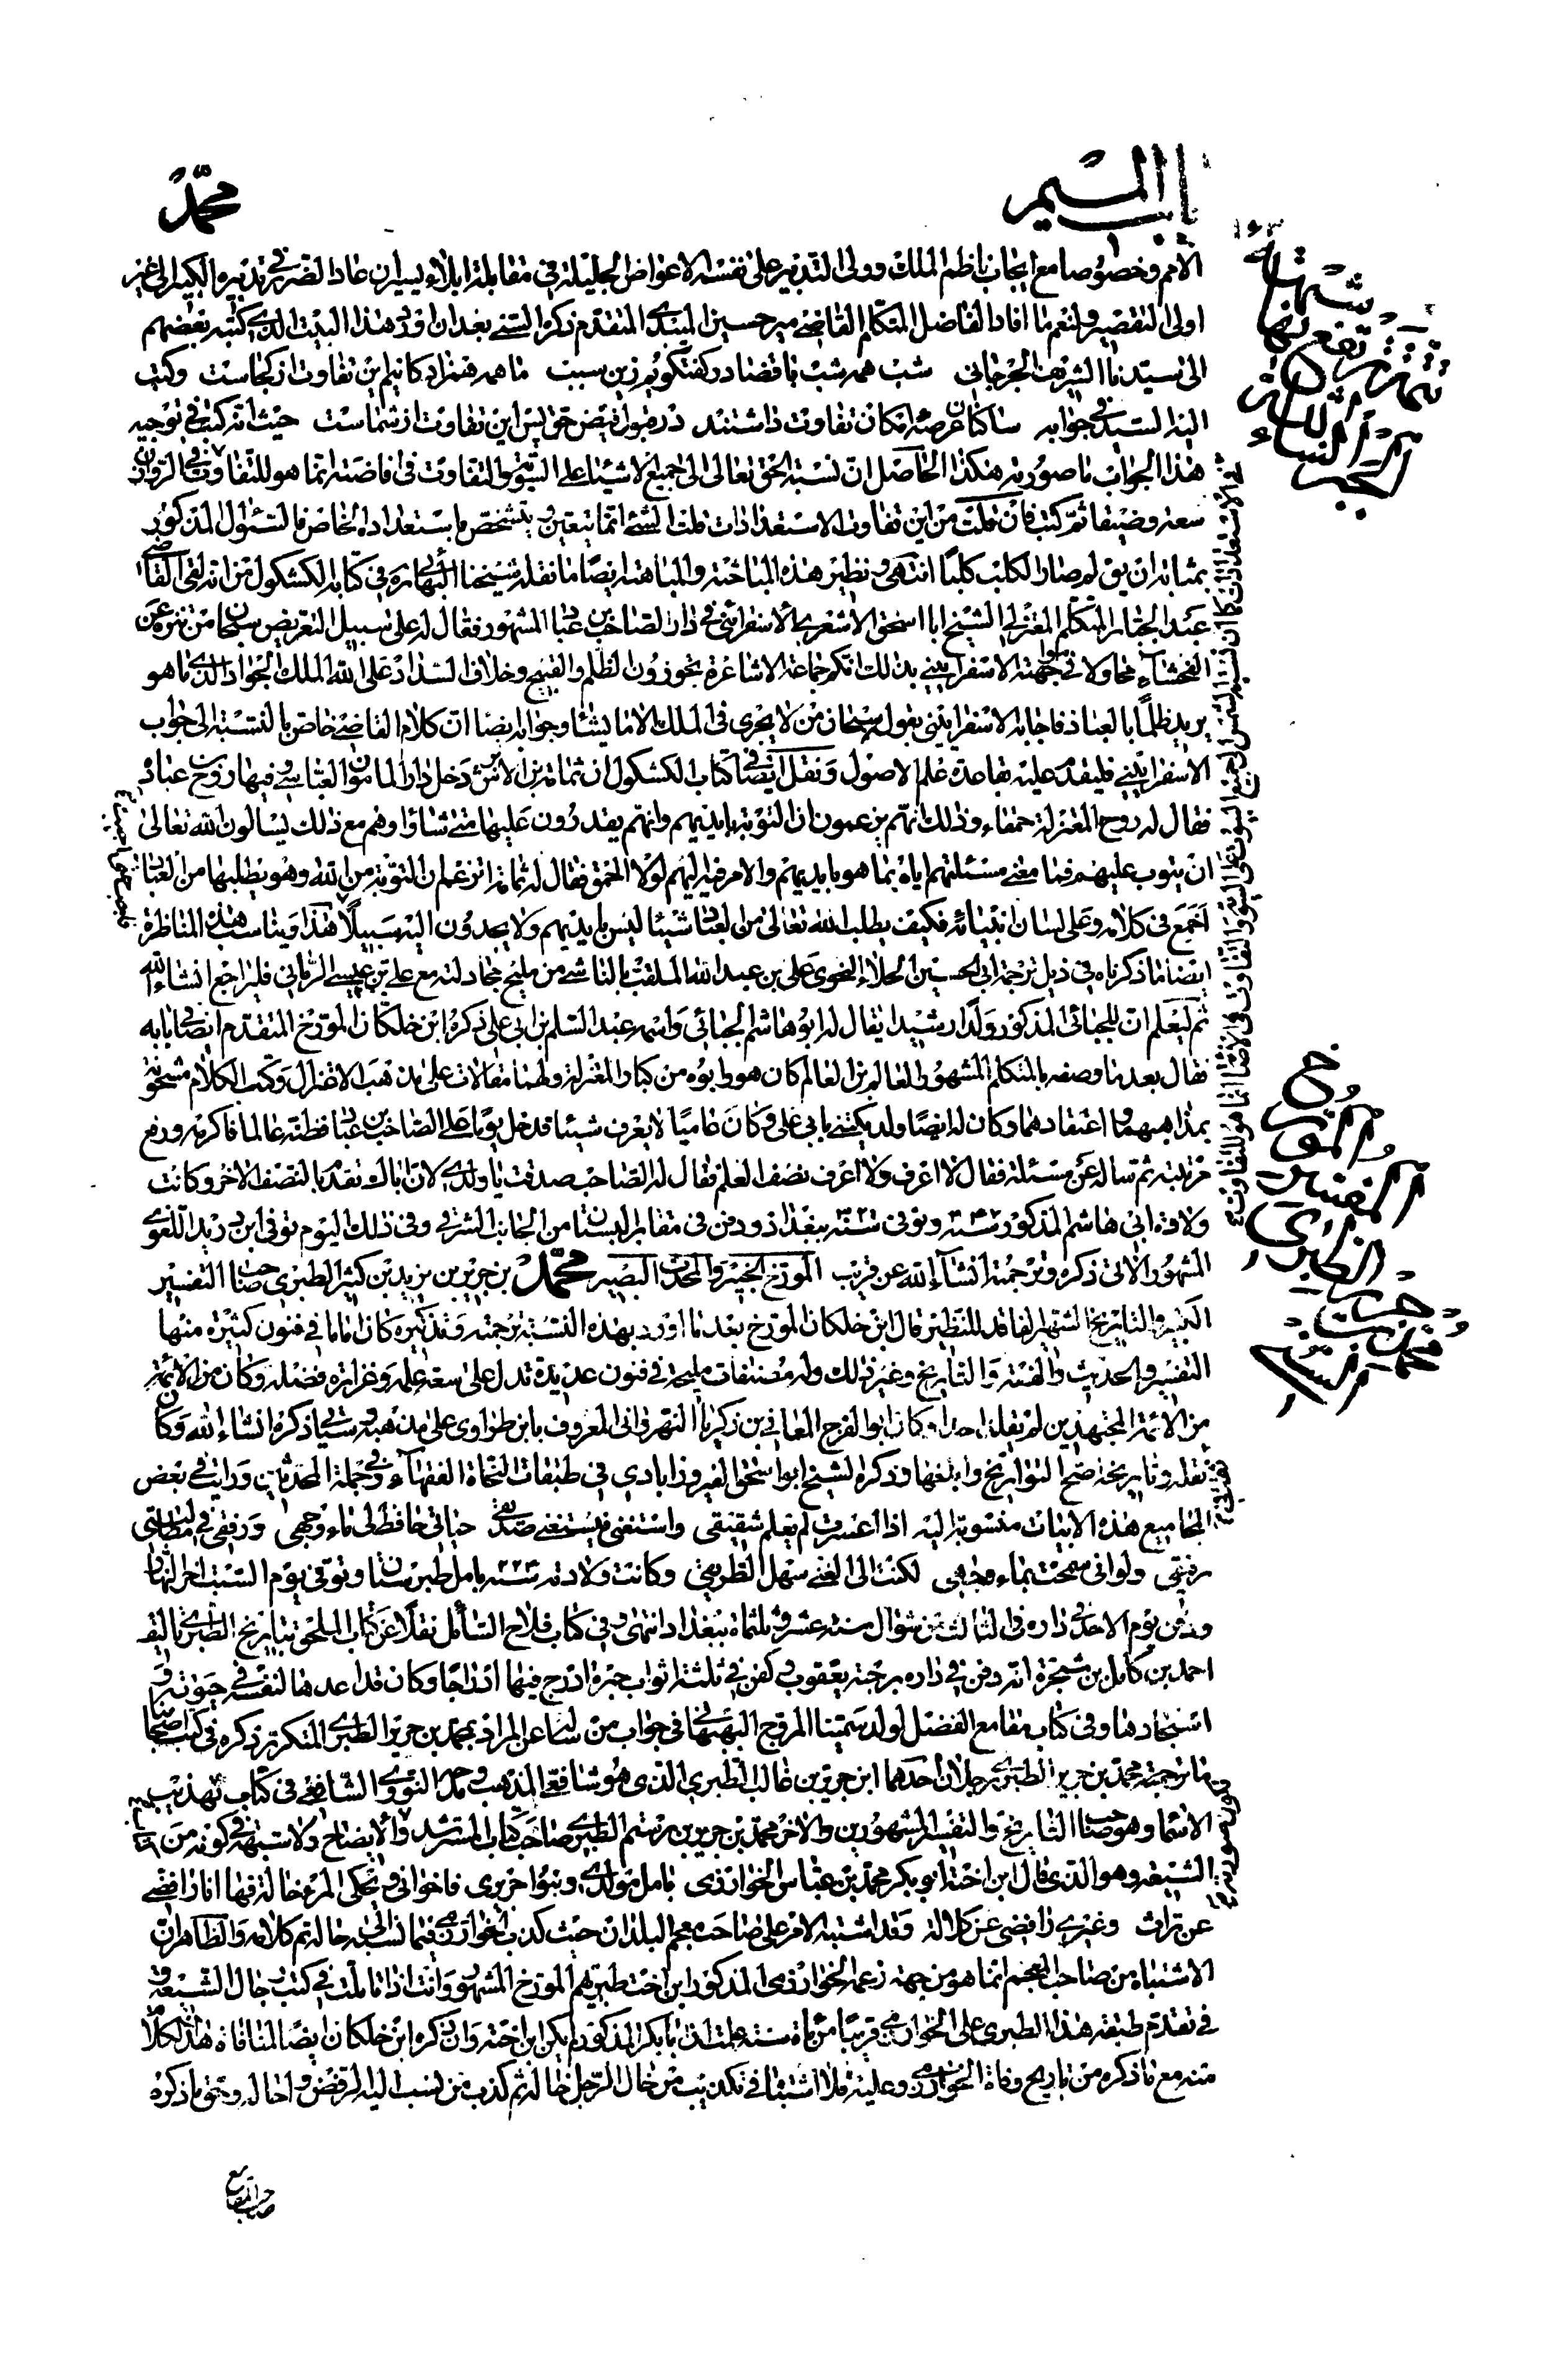 باب الميم
محمد
الامم وخصوصا مع ايجاب ناظم الملك وولى التدبير على نفسه الاعواض الجليلة في مقابلة ابلاء يسير ان عاد الضرر في تدبيره الكبير الى غير
اولى التقصير ولنعم ما افاد الفاضل المتكلم القاضي مير حسين الميبدى المتقدم ذكره السني بعد ان اورد هذا البيت الذي كتبه بعضهم
الى سيدنا الشريف الجرجانى شب همه شب با قضا در كفتكويم زين سبب ما همه هنزاد كانيم اين تفاوت از كجاست وكتب
اليه السيد في جوابه ساكنان عرصه امكان تفاوت داشتند در قبول فيض حق پس اين تفاوت از شماست حيث انه كتب في توجيه
هذا الجواب ما صورته هكذا الحاصل ان نسبة الحق تعالى الى جميع الاشياء على السوية والتفاوت في افاضته انما هو للتفاوت في القوابل
سعة وضيقا ثم كتب فان قلت من اين تفاوت الاستعدادات قلت الشئ انما يتعين ويتشخص باستعداده الخاص فالسئوال المذكور
بمثابة ان يق لم صار الكلب كلبا انتهى ونظير هذه المباحثة والمباهتة ايضا ما نقله شيخنا البهائي ره في كتابه الكشكول من انه لقى القاضي
عبد الجبار المتكلم المعتزلي الشيخ ابا اسحق الاشعري الاسفرائنى في دار الصاحب بن عباد المشهور فقال له على سبيل التعريض سبحان من تنزه عن
الفحشاء محاولا في جهة الاسفرايني بذلك انكم جماعة الاشاعرة تجوزون الظلم والقبيح وخلاف السداد على الله الملك الجواد الذي ما هو
يريد ظلما بالعباد فاجابه الاسفرايني بقوله سبحان من لا يجرى في الملك الا ما يشاء وجوابه ايضا ان كلام القاضي خاص بالنسبة الى جواب
الاسفرايني فليقدم عليه بقاعدة علم الاصول ونقل ايضا في كتاب الكشكول ان ثمامة بن الاشرس دخل دار المامون العباسي وفيها روح بن عبادة
فقال له روح المعتزلة حمقاء وذلك انهم يزعمون ان التوبة بايديهم وانهم يقدرون عليها متى شاؤا وهم مع ذلك يسالون الله تعالى
ان يتوب عليهم فما معنى مسئلتهم اياه بما هو بايديهم والامر فيه اليهم لولا الحمق فقال له ثمامة الست تزعم ان التوبة من الله وهو يطلبها من العباد
اجمع في كلامه وعلى لسان انبيائه فكيف يطلب الله تعالى من العباد شيئا ليس بايديهم ولا يجدون اليه سبيلا هذا ويناسب هذه المناظرة
ايضا ما ذكرناه في ذيل ترجمة ابى الحسين الحلاء النحوي على بن عبد الله الملقب بالناشي من مليح مجادلته مع علي بن عيسى الرماني فليراجع انشاء الله
ثم ليعلم ان للجبائى المذكور ولدا رشيدا يقال له ابو هاشم الجبائي واسمه عبد السلم بن ابى على ذكره ابن خلكان المورخ المتقدم ايضا في بابه
فقال بعد ما وصفه بالمتكلم المشهور العالم بن العالم كان هو وابوه من كبار المعتزلة ولهما مقالات على مذهب الاعتزال وكتب الكلام مشحونة
بمذاهبهما واعتقادهما وكان له ايضا ولد يكنى بابي على وكان عاميا لا يعرف شيئا فدخل يوما على الصاحب بن عباد فظنه عالما فاكرمه ورفع
مرتبته ثم ساله عن مسئلة فقال لا اعرف ولا اعرف نصف العلم فقال له الصاحب صدقت يا ولدي الا ان اباك تقدم بالنصف الاخر وكانت
ولادة ابى هاشم المذكور وتوفى ببغداد ودفن في مقابر البستان من الجانب الشرقي وفي ذلك اليوم توفى ابن دريد اللغوي
المشهور الآتى ذكره وترجمته انشاء الله عن قريب المورخ الخبير والمحدث البصير محمد بن جرير بن يزيد بن كثير الطبرى صاحب التفسير
الكبير والتاريخ الشهير الفاقد للنظير قال ابن خلكان المورخ بعد ما اورد بهذه النسبة ترجمته وتذكيره كان اماما في فنون كثيرة منها
التفسير والحديث والفقه والتاريخ وغير ذلك وله مصنفات مليحة في فنون عديدة تدل على سعة علمه وغزارة فضله وكان من الائمة
من الائمة المجتهدين لم يقلد احدا وكان ابو الفرج المعافي بن زكريا النهرواني المعروف بابن طراوى على مذهبه وسياتي ذكره انشاء الله وكان
نقله وتاريخه اصح التواريخ واثبتها وذكره الشيخ ابو اسحق الفيروزابادي في طبقات الفقهاء وفي جملة المحدثين ورايت في بعض
المجاميع هذه الابيات منسوبة اليه اذا اعسرت لم يعلم شقيقى واستغنى فيستغنى صديقي حيائي حافظ لى ماء وجهي ورفقي في مطالبتى
رفيقى ولو اني سمحت بماء وجهى لكنت الى الغنى سهل الطريق وكانت ولادته بآمل طبرستان وتوفى يوم السبت اخر النهار
ودفن يوم الاحد في داره في الثالث من شوال سنة عشر وثلثماة ببغداد انتهى وفي كتاب فلاح السائل نقلا عن كتاب الملحق بتاريخ الطبري تاليف
احمد بن كامل بن شجرة انه دفن في داره برحبة يعقوب وكفن في ثلثة اثواب حبرة ادرج فيها ادراجا وكان قد اعدها لنفسه في حيوته و
استجادها وفي كتاب مقامع الفضل لولد سمينا المروج البهبهاني في جواب من سال عن المراد بمحمد بن جرير الطبري المتكرر ذكره في كتب اصحابنا
ما ترجمته محمد بن جرير الطبري رجلان احدهما ابن جرير بن غالب الطبري الذى هو شافعي المذهب وقد مدحه النووي الشافعي في كتاب تهذيب
الاسماء وهو صاحب التاريخ والتفسير المشهورين والاخر محمد بن جرير بن رستم الطبري صاحب كتاب المسترشد والايضاح ولا شبهة في كونه من علماء
الشيعة وهو الذي قال ابن اخته ابو بكر محمد بن عباس الخوارزمى بآمل مولدي وبنو جرير فاخوالي ويحكى المرء خاله فها انا رافضي
عن تراث وغيرى رافضى عن كلالة وقد اشتبه الامر على صاحب معجم البلدان حيث كذب الخوارزمي فيما نسب الى خاله تم كلامه والظاهر ان
الاشتباه من صاحب المعجم انما هو من جهة زعمه الخوارزمى المذكور ابن اخت طبريهم المورخ المشهور وانت اذا تاملت في كتب رجال الشيعة و
في تقدم طبقة هذا الطبرى على الخوارزمي قريبا من مأة سنة علمت ان ابا بكر المذكور لم يكن ابن اخته وان ذكره ابن خلكان ايضا لمنافاة هذا الكلام
منه مع ما ذكره من تاريخ وفاة الخوارزمي وعليه فلا اشتباه في تكذيب من خال الرجل خاله ثم كذب من نسب اليه الرفض واحاله وحقق ما ذكره
المورخ
المفسر
الطبري
محمد بن جرير